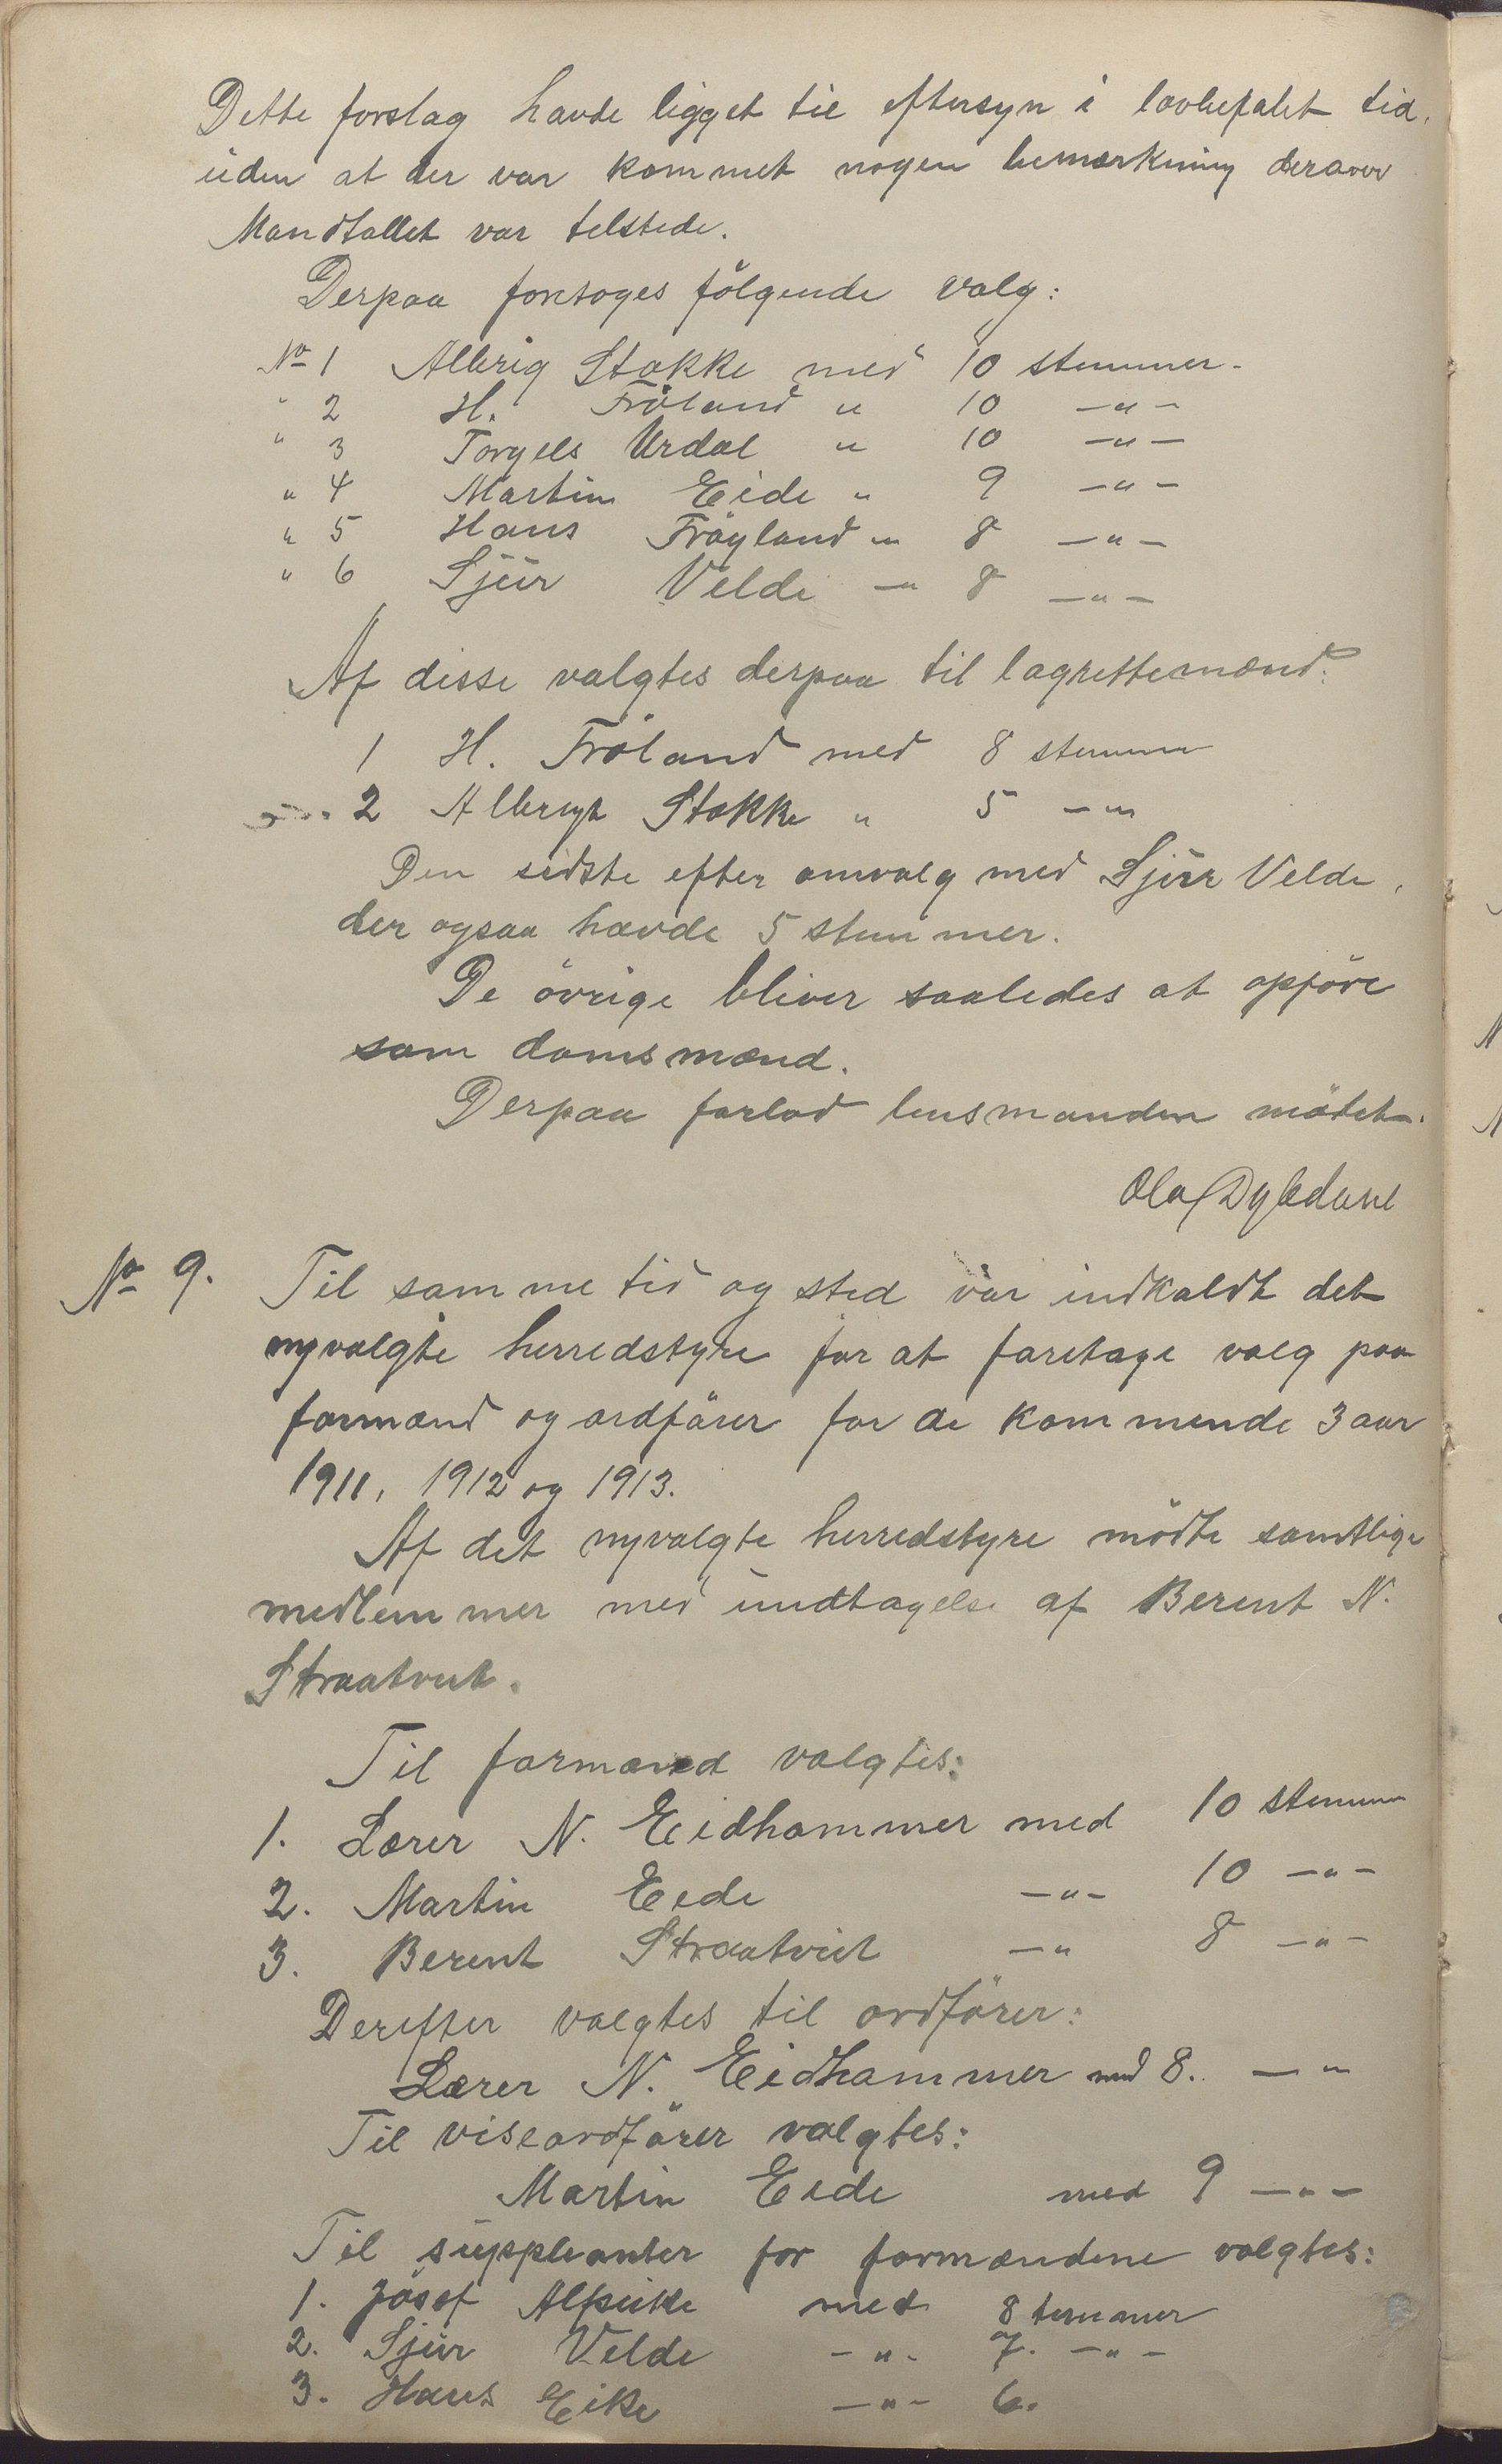 Dette forslag havde ligget til eftersyn i lovbefalet tid,
uden at der var kommet nogen bemærkning derover
Mandtallet var telstede.
Derpaa foretoges følgende valg:
No 1 Albrig Stokke med 10 stemmer.
" 2 H. Fröland " 10 —"—
" 3 Torgels Urdal " 10 —"—
" 4 Martin Eide " 9 —"—
" 5 Hans Fröyland " 8 —"—
" 6 Sjur Velde —" 8 —"—
Af disse valgtes derpaa til lagrettemænd:
1 H. Fröland med 8 stemmer
2 Albrigt Stokke " 5 —"
Den sidste efter omvalg med Sjur Velde,
der ogsaa havde 5 stemmer.
De övrige bliver saaledes at opföre
som domsmænd.
Derpaa forlod lensmanden mödet.
Olaf
No 9. Til samme tid og sted var indkaldt det
nyvalgte herredstyre for at foretage valg paa
formænd og ordförer for de kommende 3 aar
1911, 1912 og 1913.
Af det nyvalgte herredstyre mödte samtlige
medlemmer med undtagelse af Berent N.
Straatveit.
Til formænd valgtes:
1. Lærer N. Eidhammer med 10 stemmer
2. Martin Eide —"— 10 —"—
3. Berent Straatveit —" 8 —"—
Derefter valgtes til ordförer:
Lærer N. Eidhammer med 8. —"
Til viseordförer valgtes:
Martin Eide med 9 —"—
Til suppleanter for formændene valgtes:
1. Josef Alsvike med 8 temmer
2. Sjur Velde —"— 7. —"—
3. Hans Eike —"— 6.